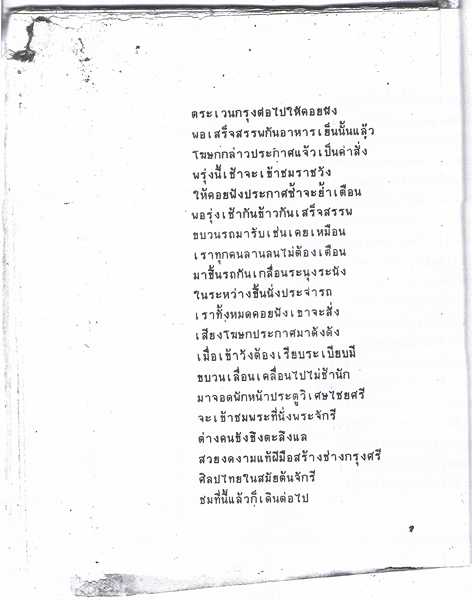 ตระเวนกรุงต่อไปให้คอยฟัง
พอเสร็จสรรพกันอาหารเย็นนั้นแล้ว
โฆษกกล่าวประกาศแจ้วเป็นคำสั่ง
พรุ่งนี้เช้าจะเข้าชมราชวัง
ให้คอยฟังประกาศซ้ำจะย้ำเตือน
พอรุ่งเช้ากันข้าวกันเสร็จสรรพ
ขบวนรถมารับเช่นเคยเหมือน
เราทุกคนลานลนไม่ต้องเตือน
มาขึ้นรถกันเกลื่อนระนุงระนัง
ในระหว่างขึ้นนั่งประจำรถ
เราทั้งหมดคอยฟังเขาจะสั่ง
เสียงโฆษกประกาศมาดังดัง
เมื่อเข้าวังต้องเรียบระเบียบมี
ขบวนเลื่อนเคลื่อนไปไม่ช้านัก
มาจอดพักหน้าประตูวิเศษไชยศรี
จะเข้าชมพระที่นั่งพระจักรี
ต่างคนยังขึงตะลึงแล
สวยงดงามแท้ฝีมือสร้างช่างกรุงศรี
ศิลปไทยในสมัยต้นจักรี
ชมที่นี้แล้วก็เดินต่อไป